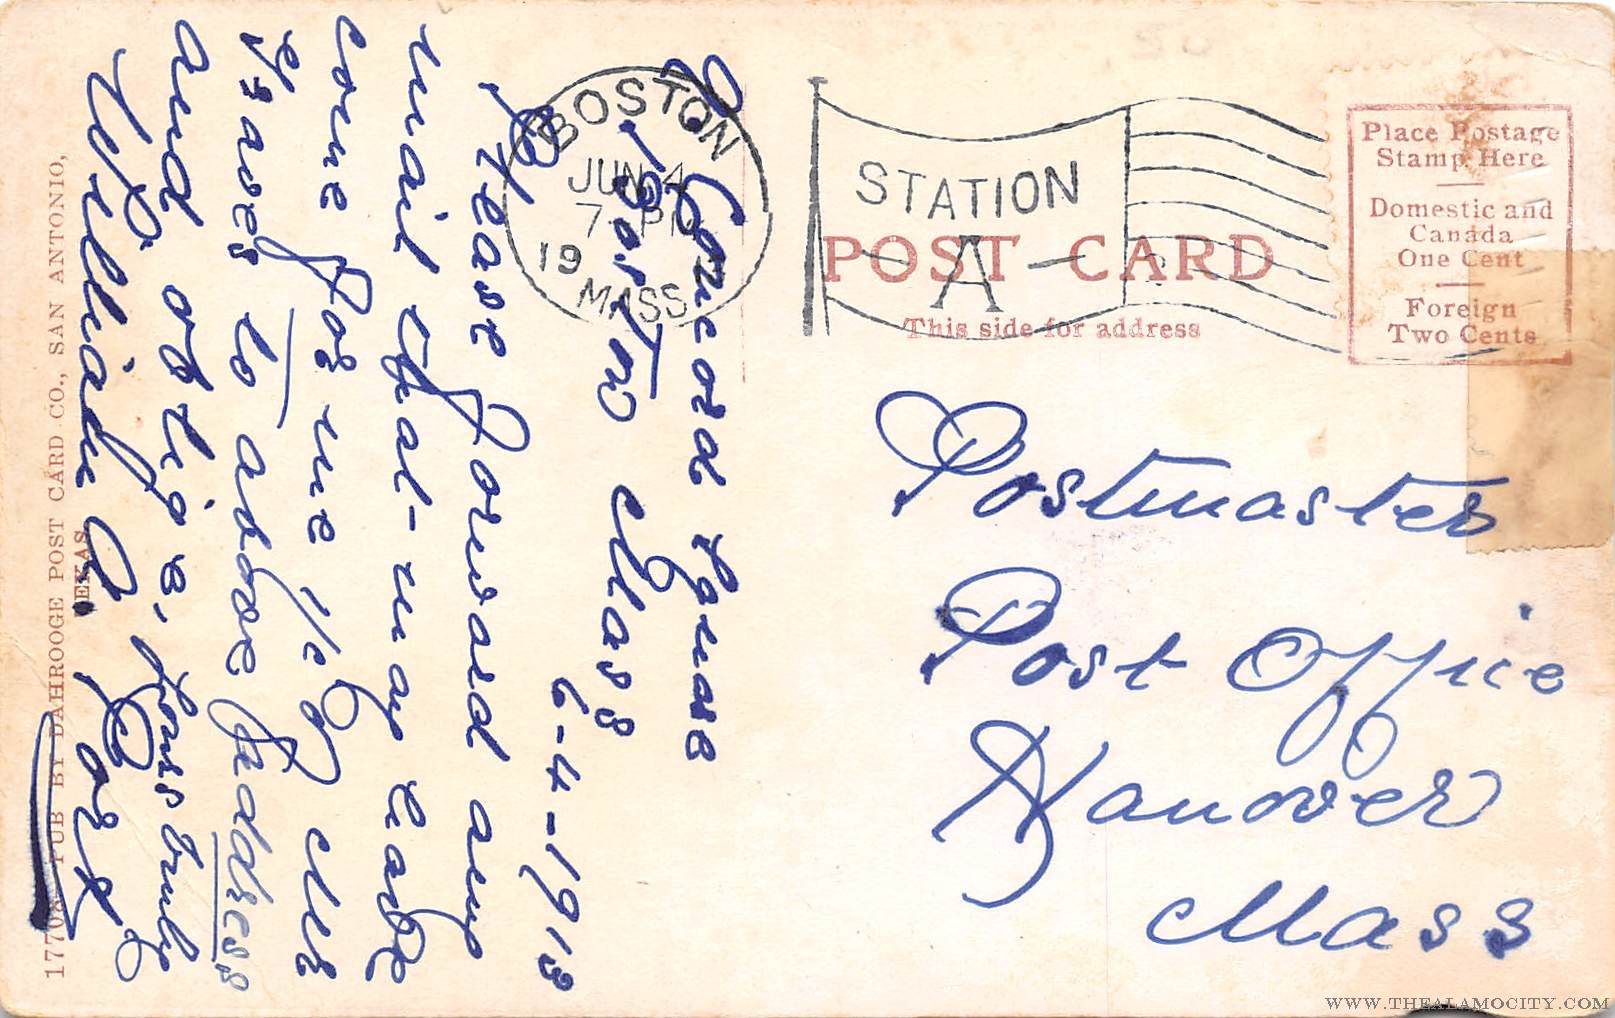 BOSTON
JUN 4
7 PM
19
MASS.
STATION
A
POST CARD
This side for address
Place Postage
Stamp Here
Domestic and
Canada
One Cent
Foreign
Two Cents
Postmaster
Post Office
Hanover
Mass
9. Concord Square
Boston Mass
6-4-1913
Please forward any
mail that may have
come for me c/o Mr
to above address
and oblige, Yours truly
William A.
17708 PUB BY DAHROOGE POST CARD CO., SAN ANTONIO,
TEXAS.
WWW.THEALAMOCITY.COM